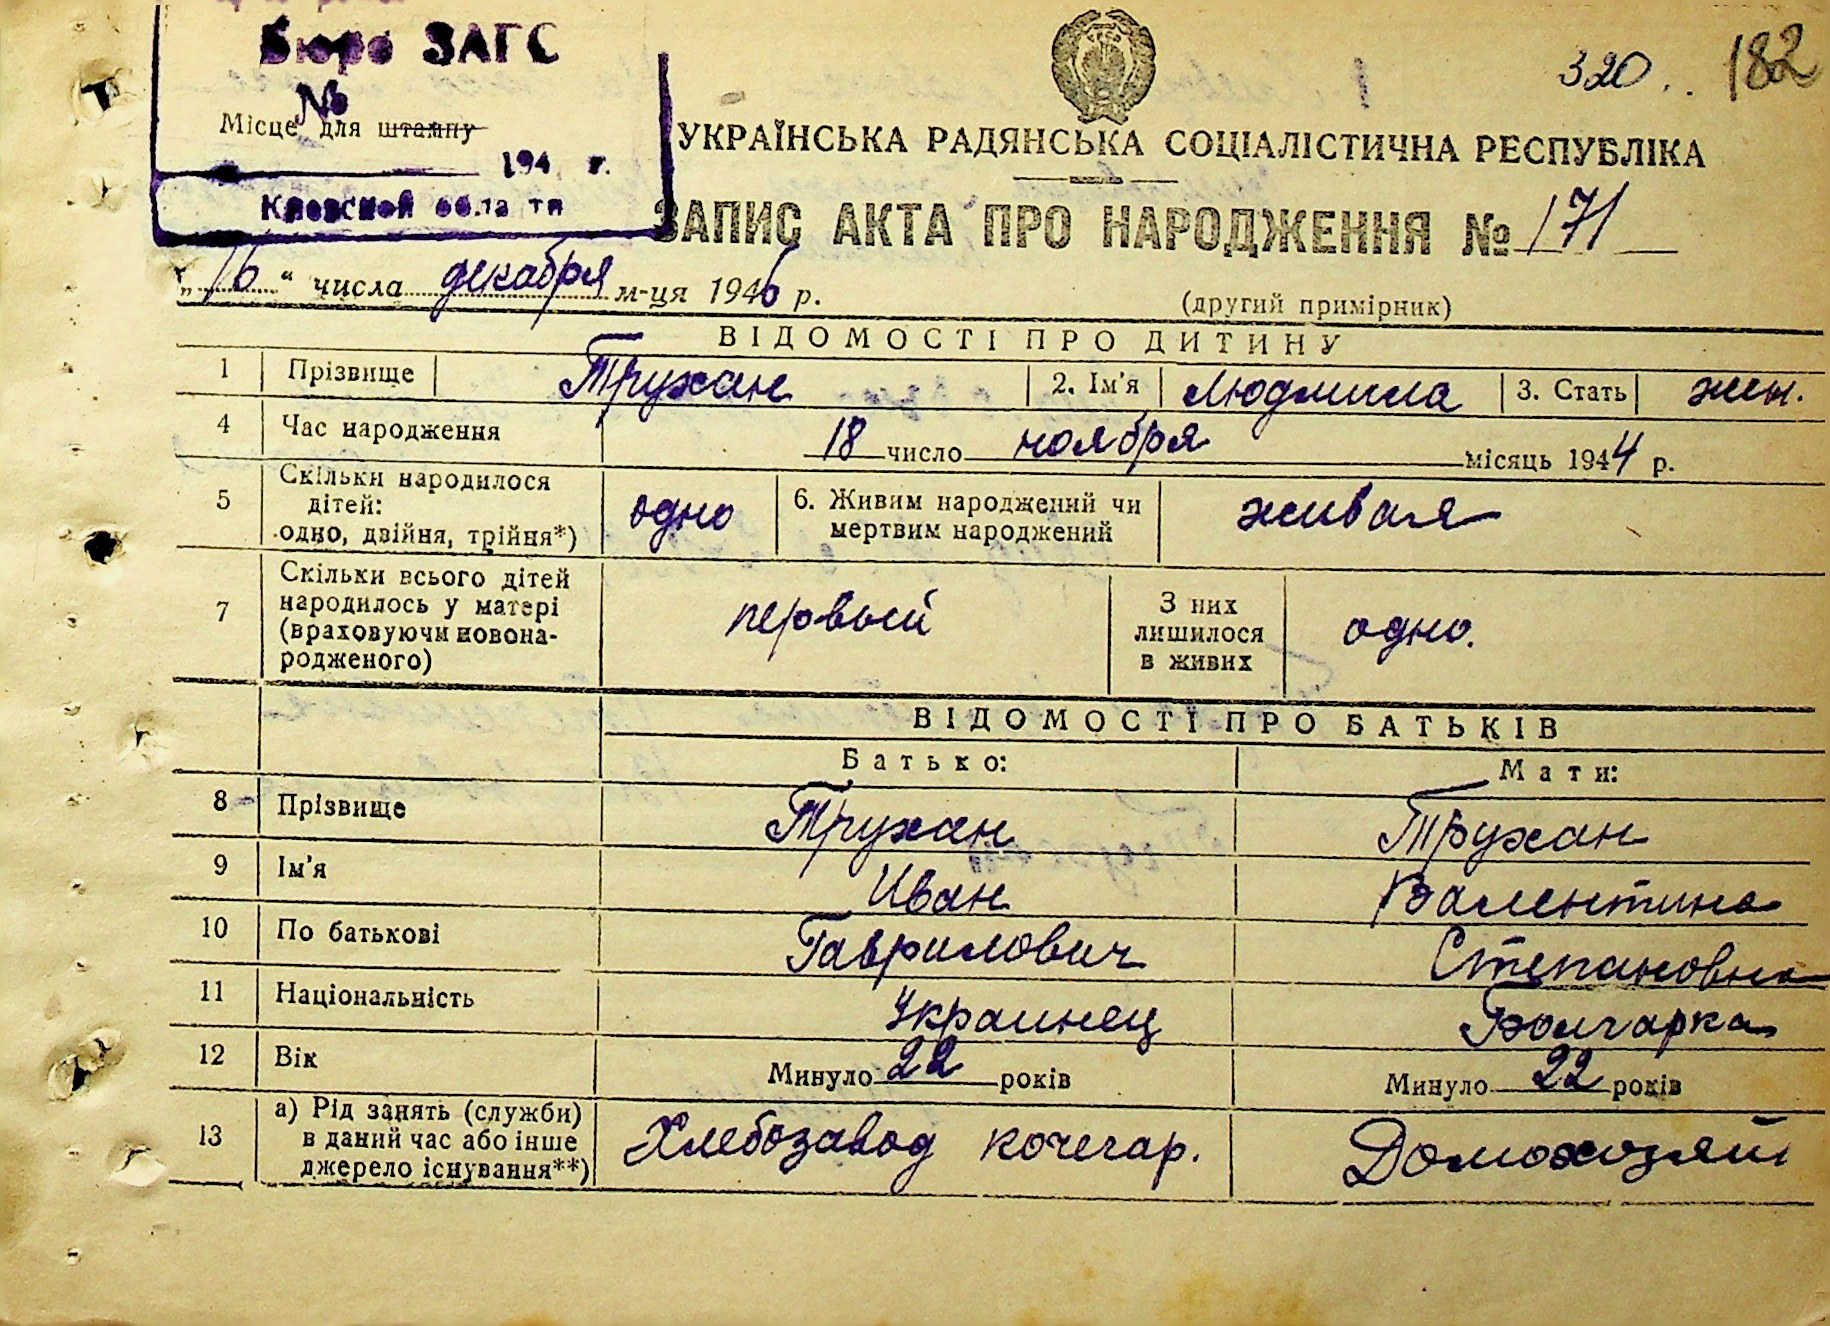 Бюро ЗАГС
№
Місце для штампу
194 г.
Киевской области
320
182
УКРАЇНСЬКА РАДЯНСЬКА СОЦІАЛІСТИЧНА РЕСПУБЛІКА
ЗАПИС АКТА ПРО НАРОДЖЕННЯ № 171
„16“ числа декабря м-ця 1946 р.
(другий примірник)
ВІДОМОСТІ ПРО ДИТИНУ
1 Прізвище Трухан 2. Ім'я Людмила 3. Стать жен.
4 Час народження 18 число ноября місяць 1944 р.
5 Скільки народилося
дітей:
одно, двійня, трійня*) одно
6. Живим народжений чи
мертвим народжений живая
7 Скільки всього дітей
народилось у матері
(враховуючи новона-
родженого) первый
З них
лишилося
в живих одно.
ВІДОМОСТІ ПРО БАТЬКІВ
Батько: Мати:
8 Прізвище Трухан Трухан
9 Ім'я Иван Валентина
10 По батькові Гаврилович Степановна
11 Національність Украинец Болгарка
12 Вік Минуло 22 років Минуло 22 років
13 а) Рід занять (служби)
в даний час або інше
джерело існування**) Хлебозавод кочегар. Домохозяй